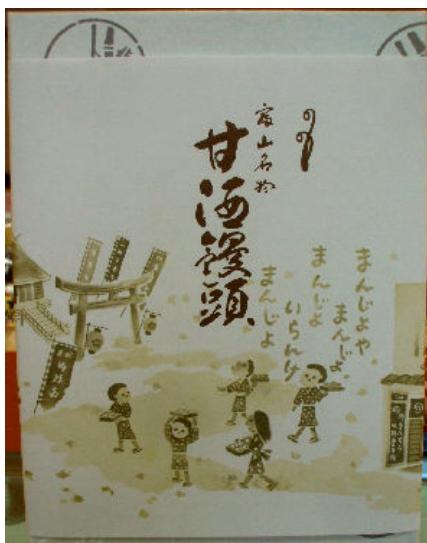 富山名物
甘酒饅頭
まんじょや
まんじょ
まんじょ
いらんけ
まんじょ